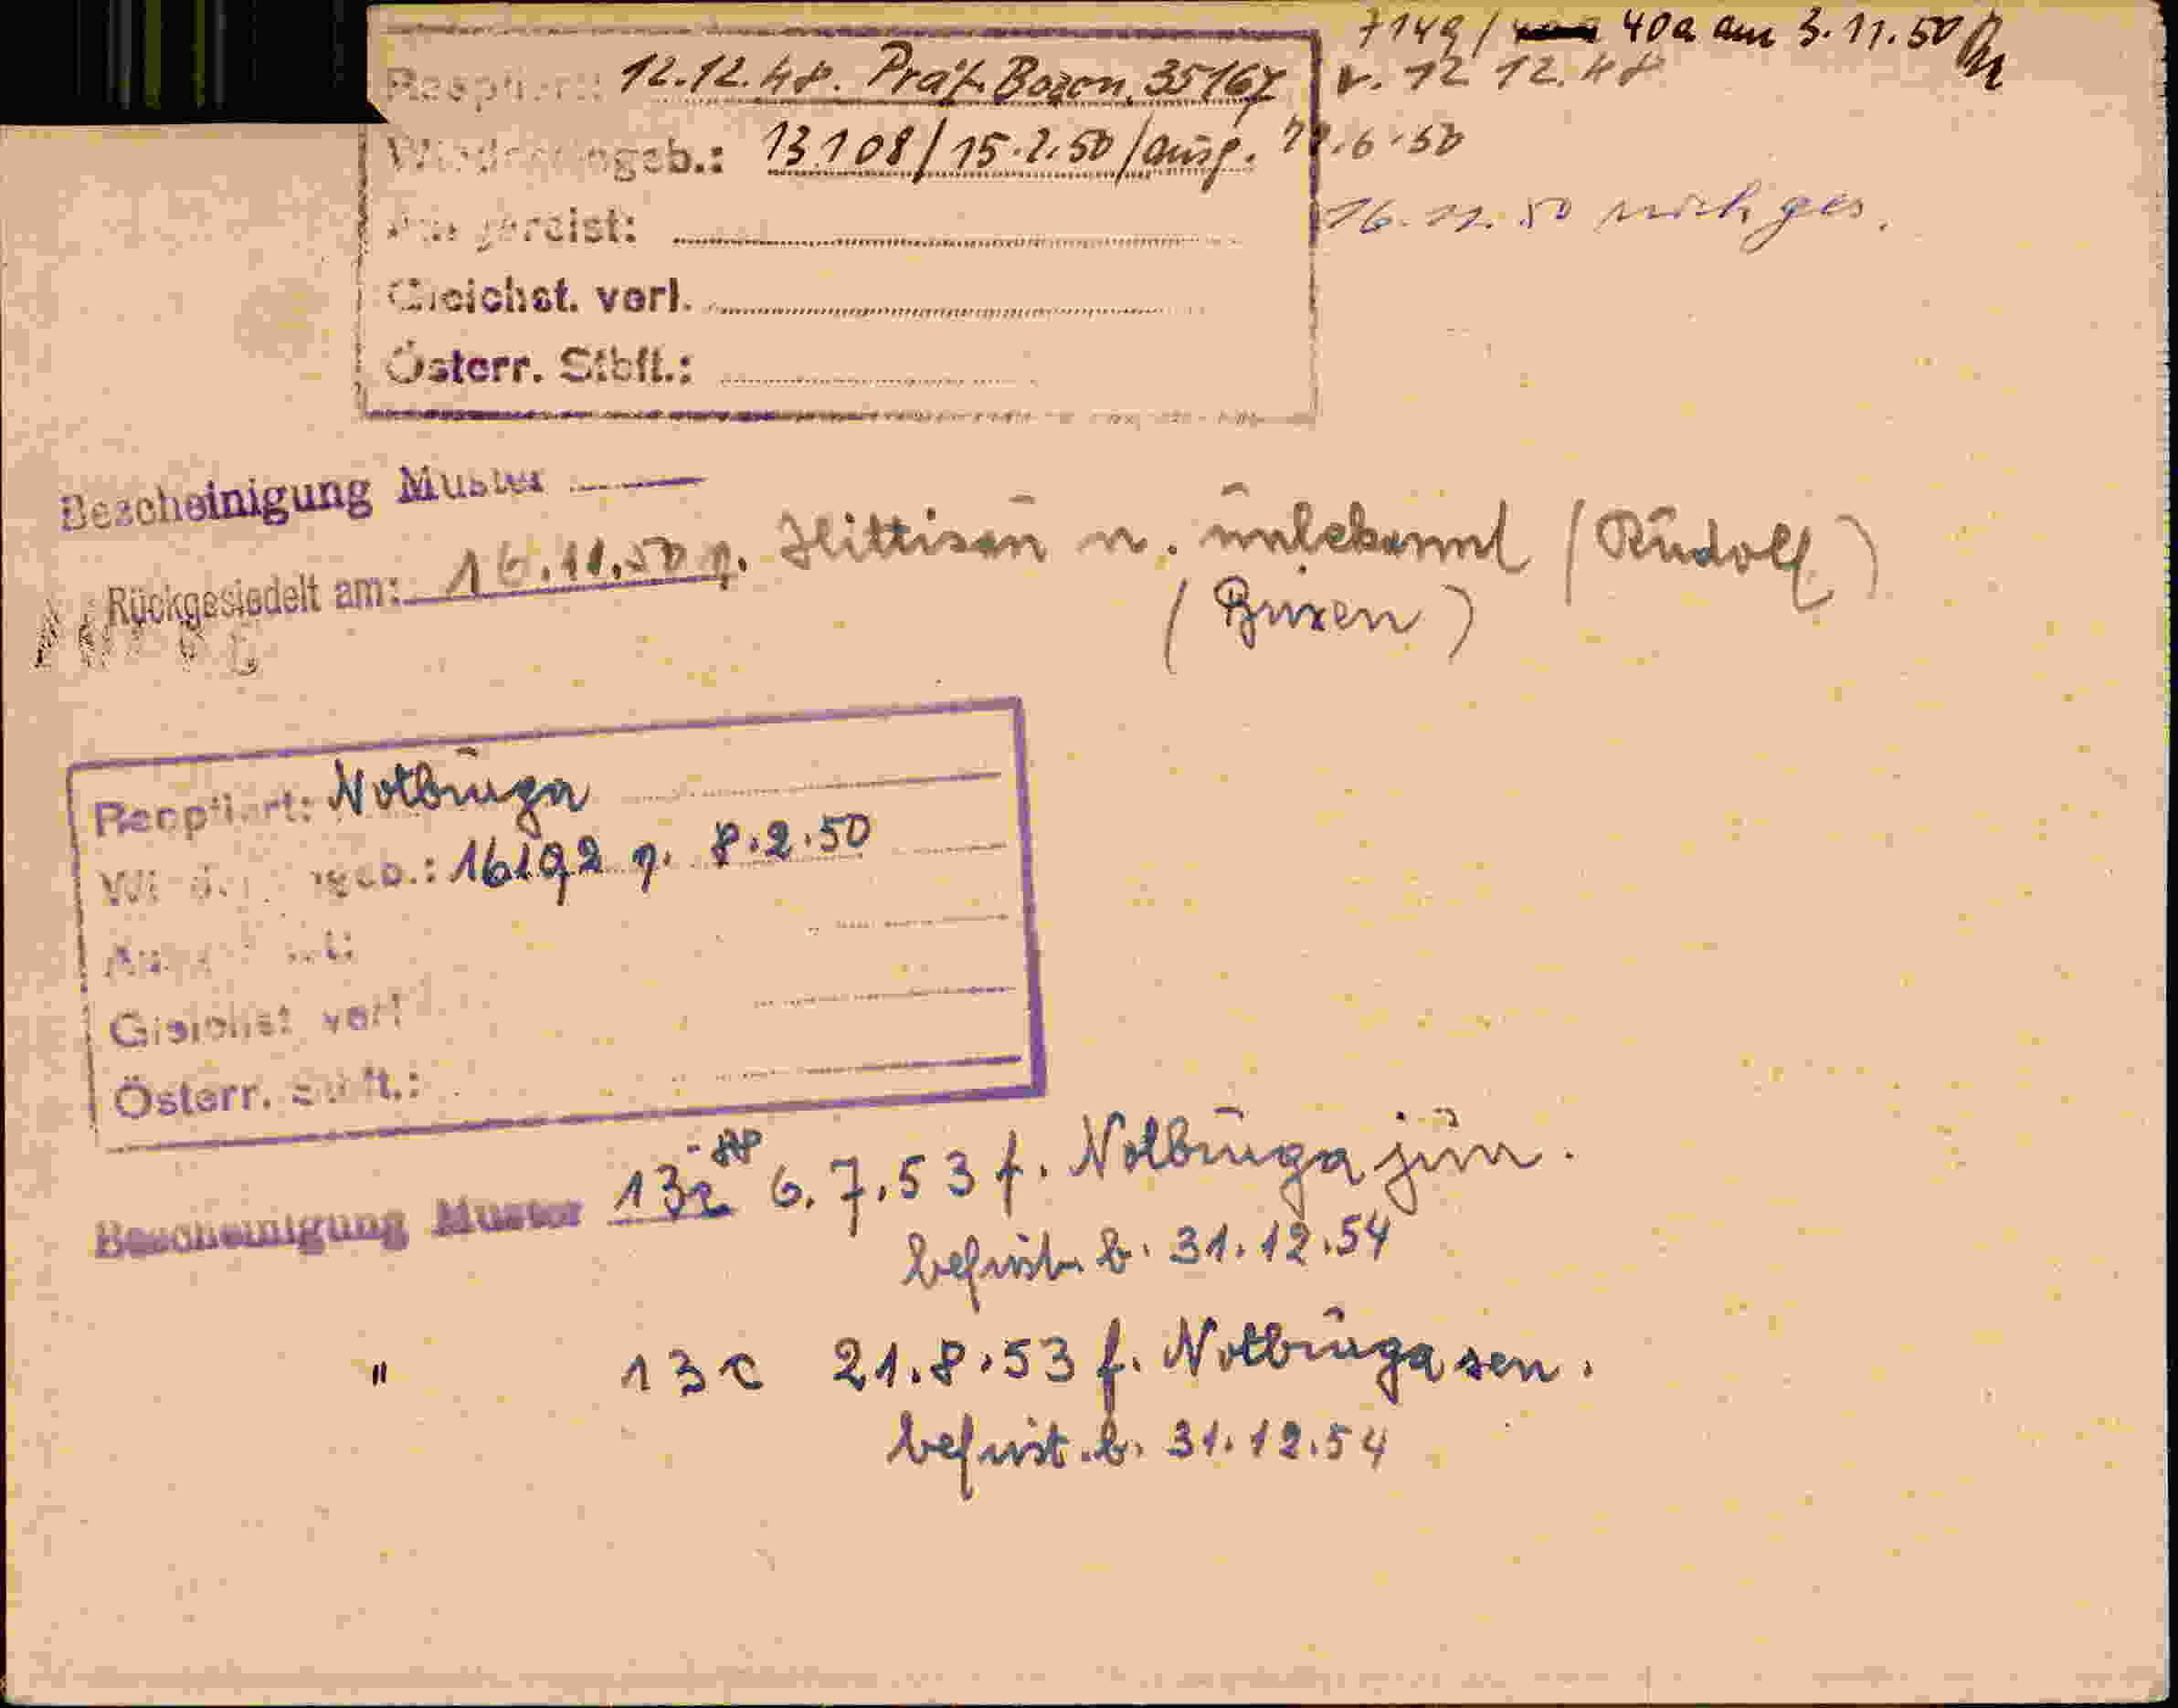 7149 / 40a am 3.11.50
Reoptiert: 12.12.48. Präf. Bozen, 35167 v. 12 12.48
Wiedereingeb.: 13108/15.2.50/ausg. .6.50
Ausgereist: 16.11.50 rückges.
Gleichst. verl.
Österr. Stbft.:
Bescheinigung Muster
Rückgesiedelt am: 16.11.50 v. Hittisau n. unbekannt (Rudolf)
(Brixen)
Reoptiert: Notburga
Wiedereingeb.: 16192 v. 8.2.50
Ausgereist:
Gleichst. verl.
Österr. Stbft.:
Bescheinigung Muster 13c 6.7.53 f. Notburga jun.
befrist. b. 31.12.54
" 13c 21.8.53 f. Notburga sen.
befrist. b. 31.12.54